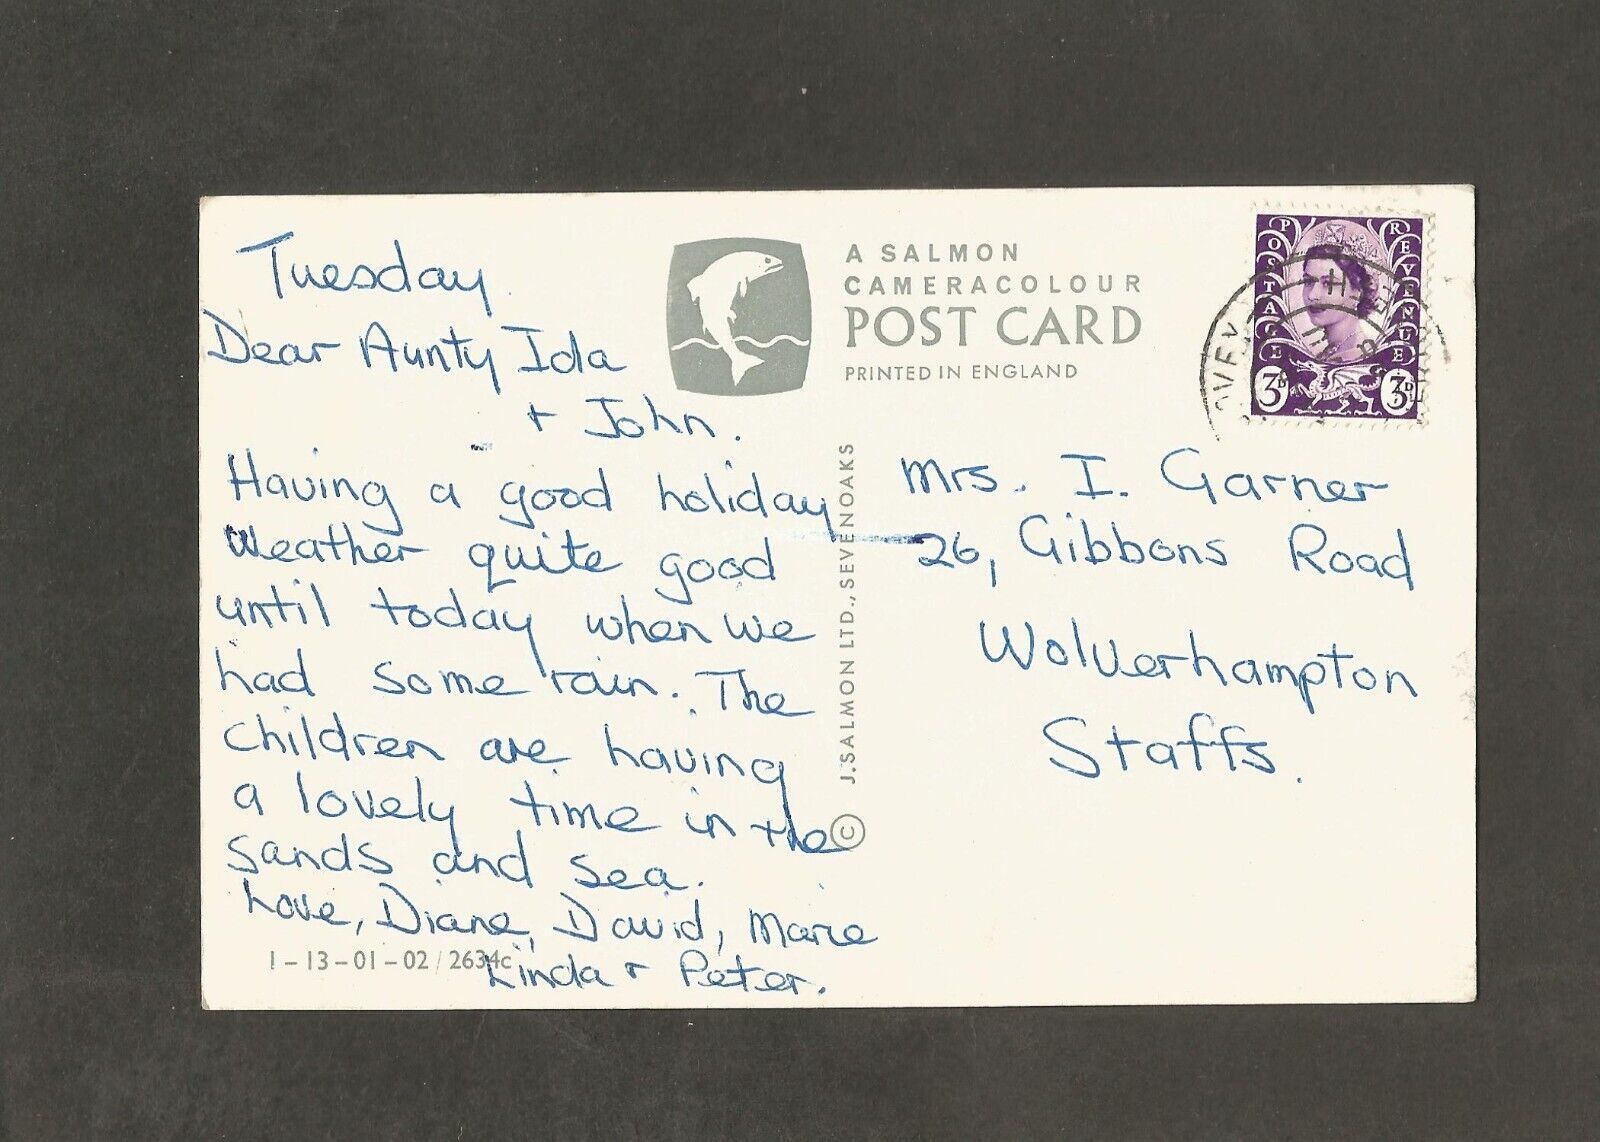 Tuesday.
Dear Aunty Ida
+ John.
Having a good holiday
Weather quite good
until today when we
had some rain. The
children are having
a lovely time in the
sands and sea.
Love, Diane, David, Marie
Linda + Peter.
1-13-01-02/2634c
A SALMON
CAMERACOLOUR
POST CARD
PRINTED IN ENGLAND
© J. SALMON LTD., SEVENOAKS
POSTAGE
REVENUE
3D
3D
Mrs. I. Garner
26, Gibbons Road
Wolverhampton
Staffs.